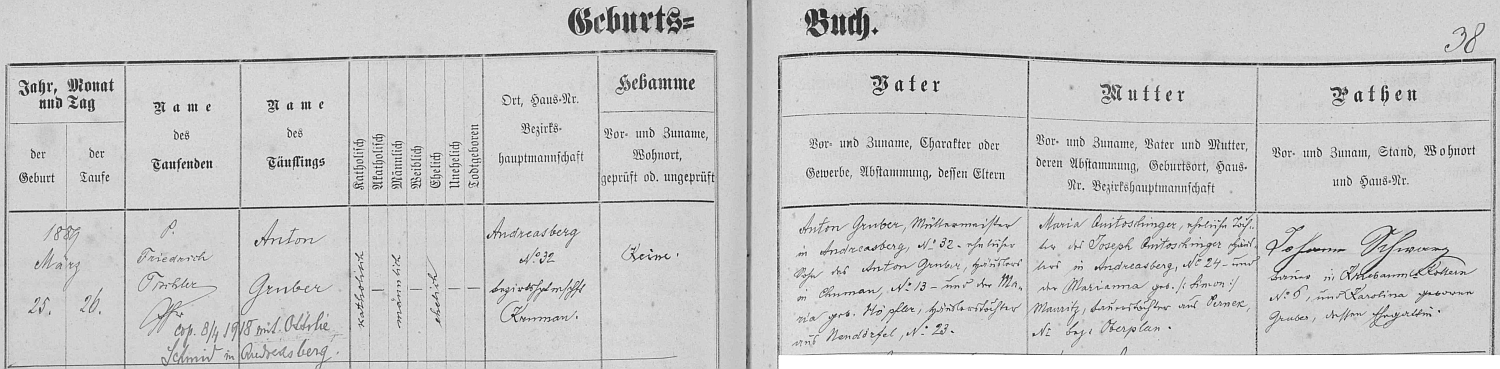 Geburts=
Buch.
38
Jahr, Monat
und Tag
der
Geburt
der
Taufe
Name
des
Taufenden
Name
des
Täuflings
Katholisch
Akatholisch
Männlich
Weiblich
Ehelich
Unehelich
Todtgeboren
Ort, Haus-Nr.
Bezirks-
hauptmannschaft
Hebamme
Vor- und Zuname,
Wohnort,
geprüft od. ungeprüft
Vater
Vor- und Zuname, Charakter oder
Gewerbe, Abstammung, dessen Eltern
Mutter
Vor- und Zuname, Vater und Mutter,
deren Abstammung, Geburtsort, Haus-
Nr. Bezirkshauptmannschaft
Pathen
Vor- und Zunam, Stand, Wohnort
und Haus-Nr.
1889
März
25. 26.
P.
Friedrich
cop. 8/4 1918 mit Ottilie
Schmid in Andreasberg.
Anton
Gruber
katholisch
—
männlich
—
ehelich
—
—
Andreasberg
No 32
Krumau.
Keine.
Anton Gruber, Müllermeister
in Andreasberg, No 32 - ehelicher
Sohn des Anton Gruber, Häuslers
in No 13 - und der Ma-
ria geb. Höpfler, Häuslerstochter
aus Neudörfel, No 23.
Maria ehеliche Toch-
ter des Joseph Häus-
lers in Andreasberg, No 24 - und
der Marianna geb. /: Simon :/
Mauritz, Bauerstochter aus Pernek,
No bez. Oberplan.
Johann Schwarz
Bauer in
No 5, und Karolina geborene
Gruber, dessen Ehegattin.